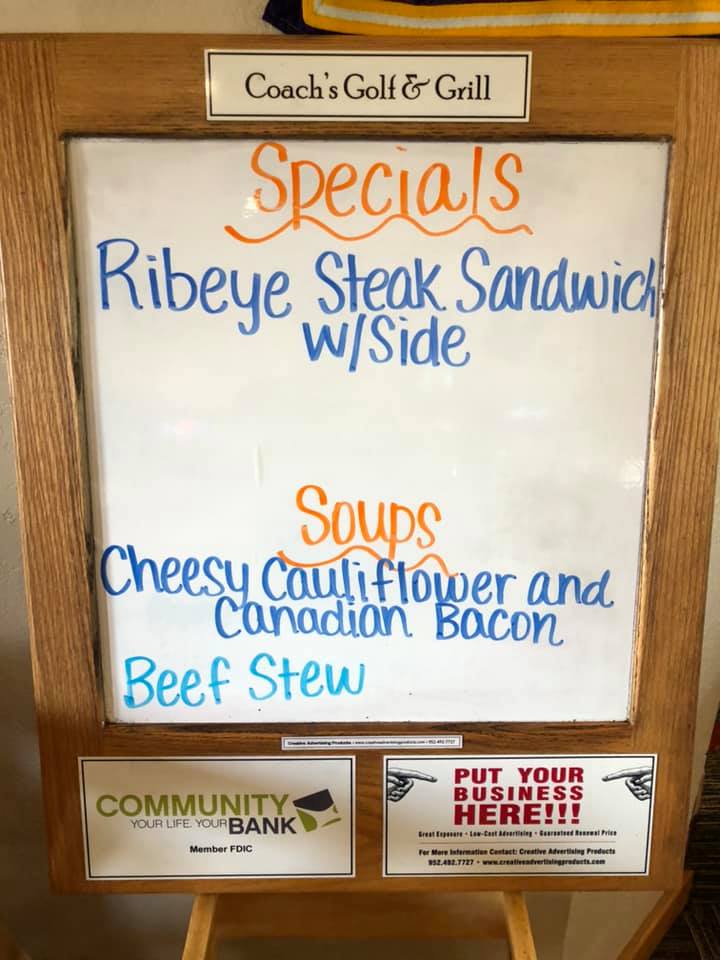 Coach's Golf & Grill
Specials
Ribeye Steak Sandwich
w/Side
Soups
Cheesy Cauliflower and
Canadian Bacon
Beef Stew
Creative Advertising Products • www.creativeadvertisingproducts.com • 952.492.7727
COMMUNITY
YOUR LIFE. YOUR BANK
Member FDIC
PUT YOUR
BUSINESS
HERE!!!
Great Exposure • Low-Cost Advertising • Guaranteed Renewal Price
For More Information Contact: Creative Advertising Products
952.492.7727 • www.creativeadvertisingproducts.com